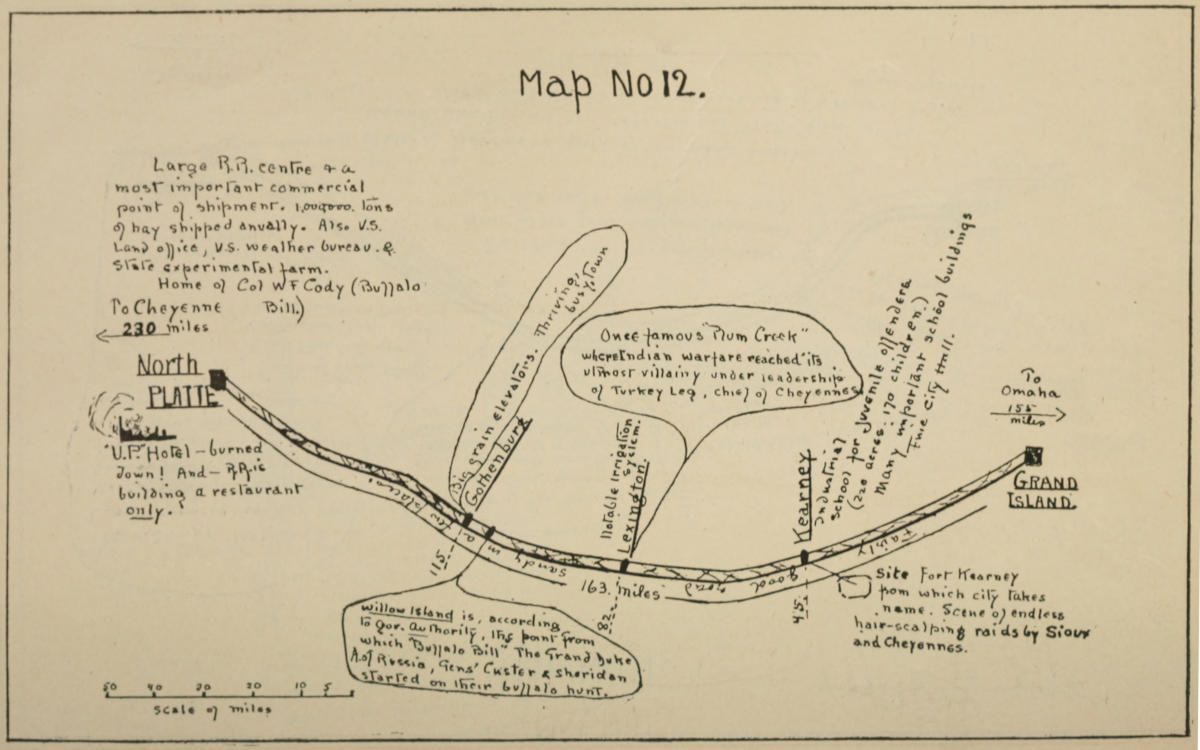 Map No 12.
Large R.R. centre & a
most important commercial
point of shipment. 1,000,000. tons
of hay shipped anually. Also U.S.
Land office, U.S. weather bureau. &
State experimental farm.
Home of Col W F Cody (Buffalo
Bill.)
To Cheyenne
230 miles
North
PLATTE
"U.P." Hotel - burned
down! And - R.R. is
building a restaurant
only.
Big grain elevators. Thriving,
busy, town
Gothenburg
Once famous "Plum Creek"
where Indian warfare reached its
utmost villainy under leadership
of Turkey Leg, chief of Cheyennes
Notable irrigation
system.
Lexington.
Kearney
Industrial
school for juvenile offenders
(220 acres: 170 children.)
Many important school buildings
Fine City Hall.
To
Omaha
155
miles
GRAND
ISLAND.
Fairly good road
sandy in a few places.
163. miles
115.
82.
45.
Site Fort Kearney
from which city takes
name. Scene of endless
hair-scalping raids by Sioux
and Cheyennes.
Willow Island is, according
to gov. authority, the point from
which "Buffalo Bill" The Grand Duke
A. of Russia, Gens' Custer & Sheridan
started on their buffalo hunt.
50 40 30 20 10 5
Scale of miles